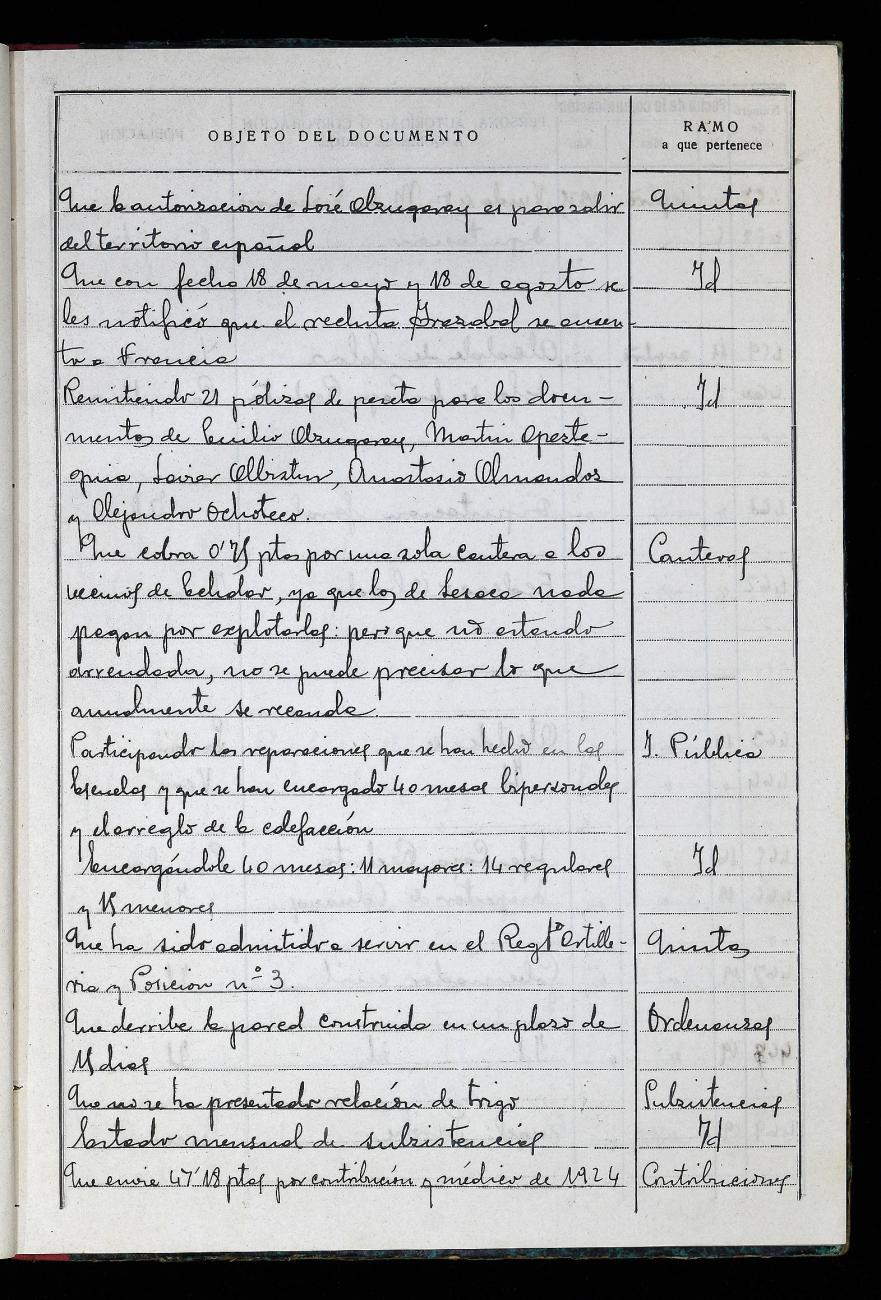 OBJETO DEL DOCUMENTO
RAMO
a que pertenece
Que la autorizacion de José Alzugaray es para salir
Quintas
del territorio español
Que con fecha 18 de mayo y 18 de agosto se
Id
les notificó que el recluta Irazabal se ausen-
ta a Francia
Remitiendo 21 pólizas de peseta para los docu-
Id
mentos de Emilio Alzugaray, Martin Apeste-
guia, Javier Albistur, Anastasio Almandoz
y Alejandro Ochoteco.
Que cobra 0'75 ptas por una sola cantera a los
Canteras
vecinos de Echalar, ya que los de Lesaca nada
pagan por explotarlas: pero que no estando
arrendada, no se puede precisar lo que
anualmente se recauda.
Participando las reparaciones que se han hecho en las
I. Pública
Escuelas y que se han encargado 40 mesas bipersonales
y el arreglo de la calefacción
Encargándole 40 mesas: 11 mayores: 14 regulares
Id
y 15 menores
Que ha sido admitido a servir en el Regto Artille-
Quintas
ria y Posicion nº 3.
Que derribe la pared construida en un plazo de
Ordenanzas
15 dias
Que no se ha presentado relación de trigo
Subsistencias
Estado mensual de subsistencias
Id
Que envie 47'18 ptas por contribución y médico de 1924
Contribuciones